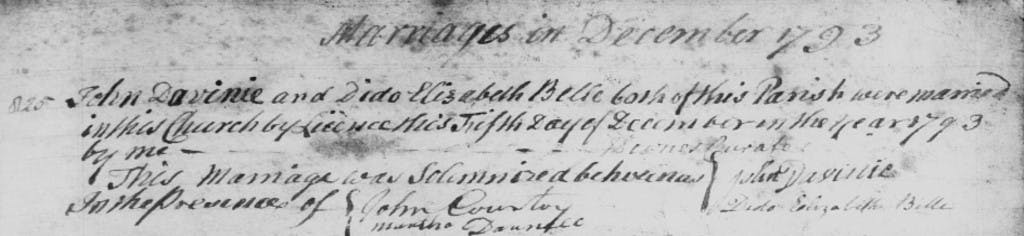 Marriages in December 1793
825 John Davinie and Dido Elizabeth Belle both of this Parish were married
in this Church by Licence this Fifth Day of December in the Year 1793
by me — Curate
This Marriage was Solemnized between us { John Davinie
In the Presence of { John Courtoy Dido Elizabeth Belle
Martha Darnlee